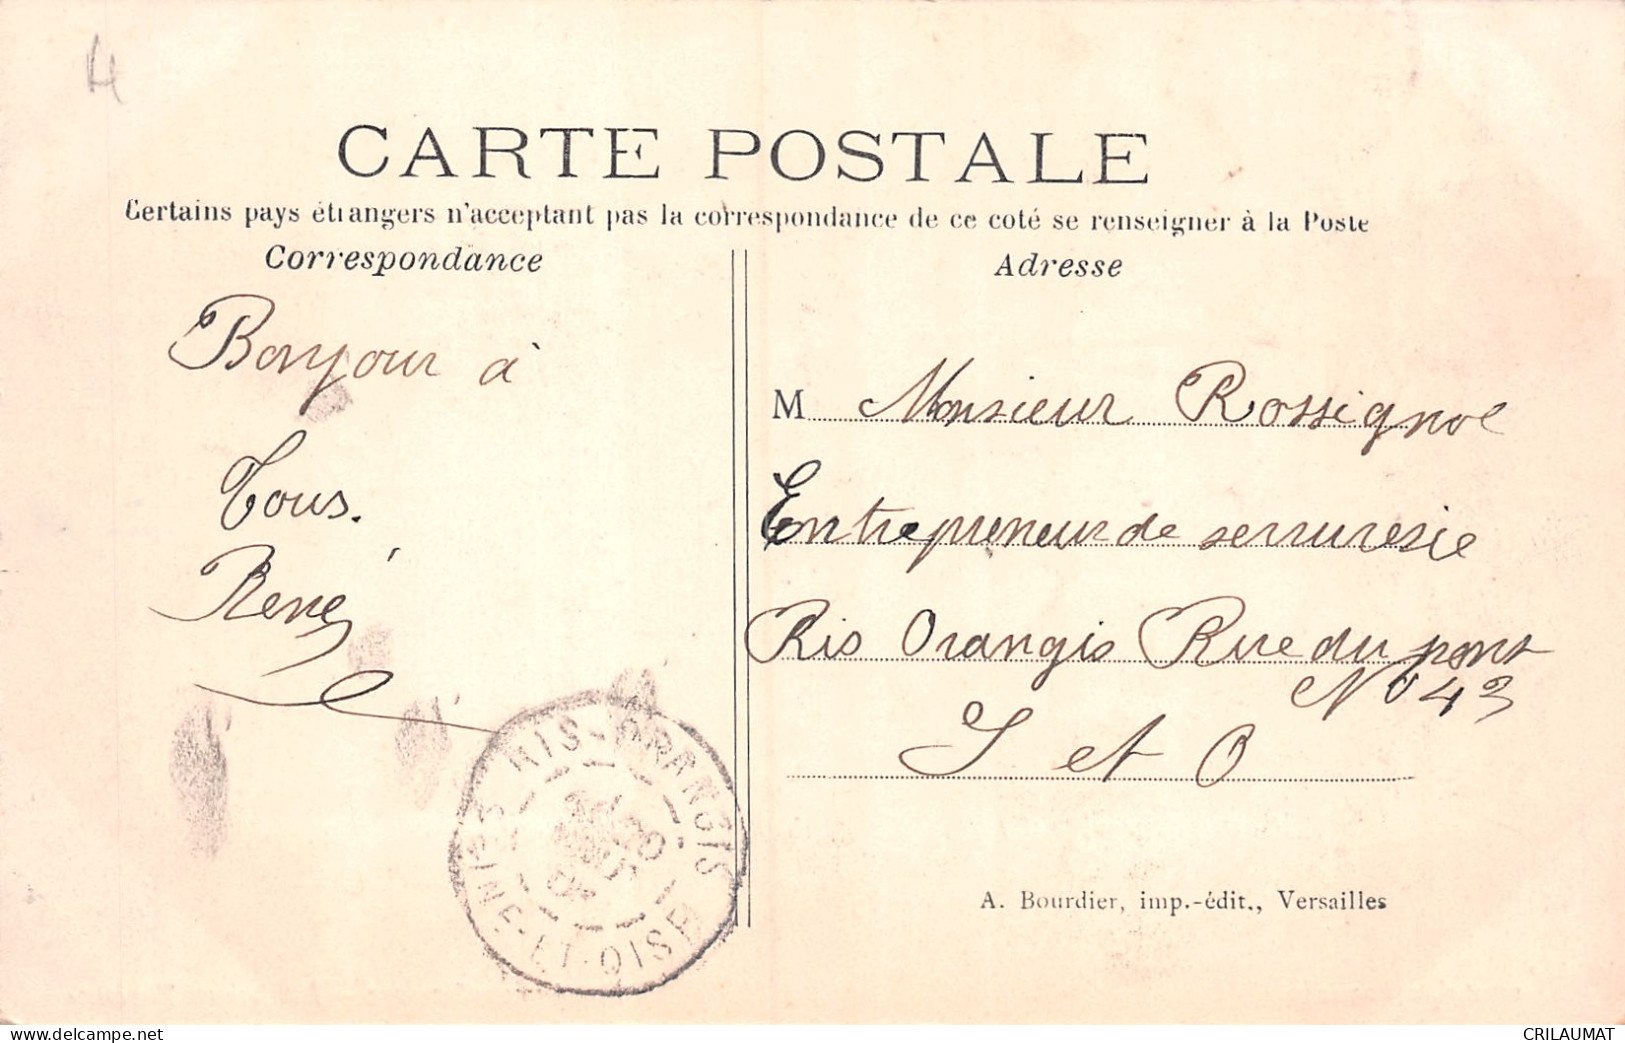 CARTE POSTALE
Certains pays étrangers n'acceptant pas la correspondance de ce coté se renseigner à la Poste
Correspondance
Adresse
Bonjour à
Tous.
René
M Monsieur Rossignol
Entrepreneur de serrurerie
Ris Orangis Rue du pont
No 43
S et O
RIS-ORANGIS
SEINE-ET-OISE
A. Bourdier, imp.-édit., Versailles
www.delcampe.net
CRILAUMAT